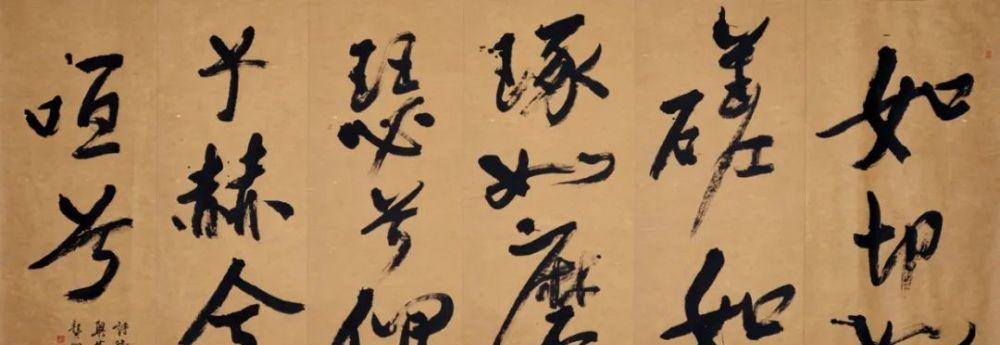 如切如
磋如
琢如磨
瑟兮僩
兮赫兮
咺兮